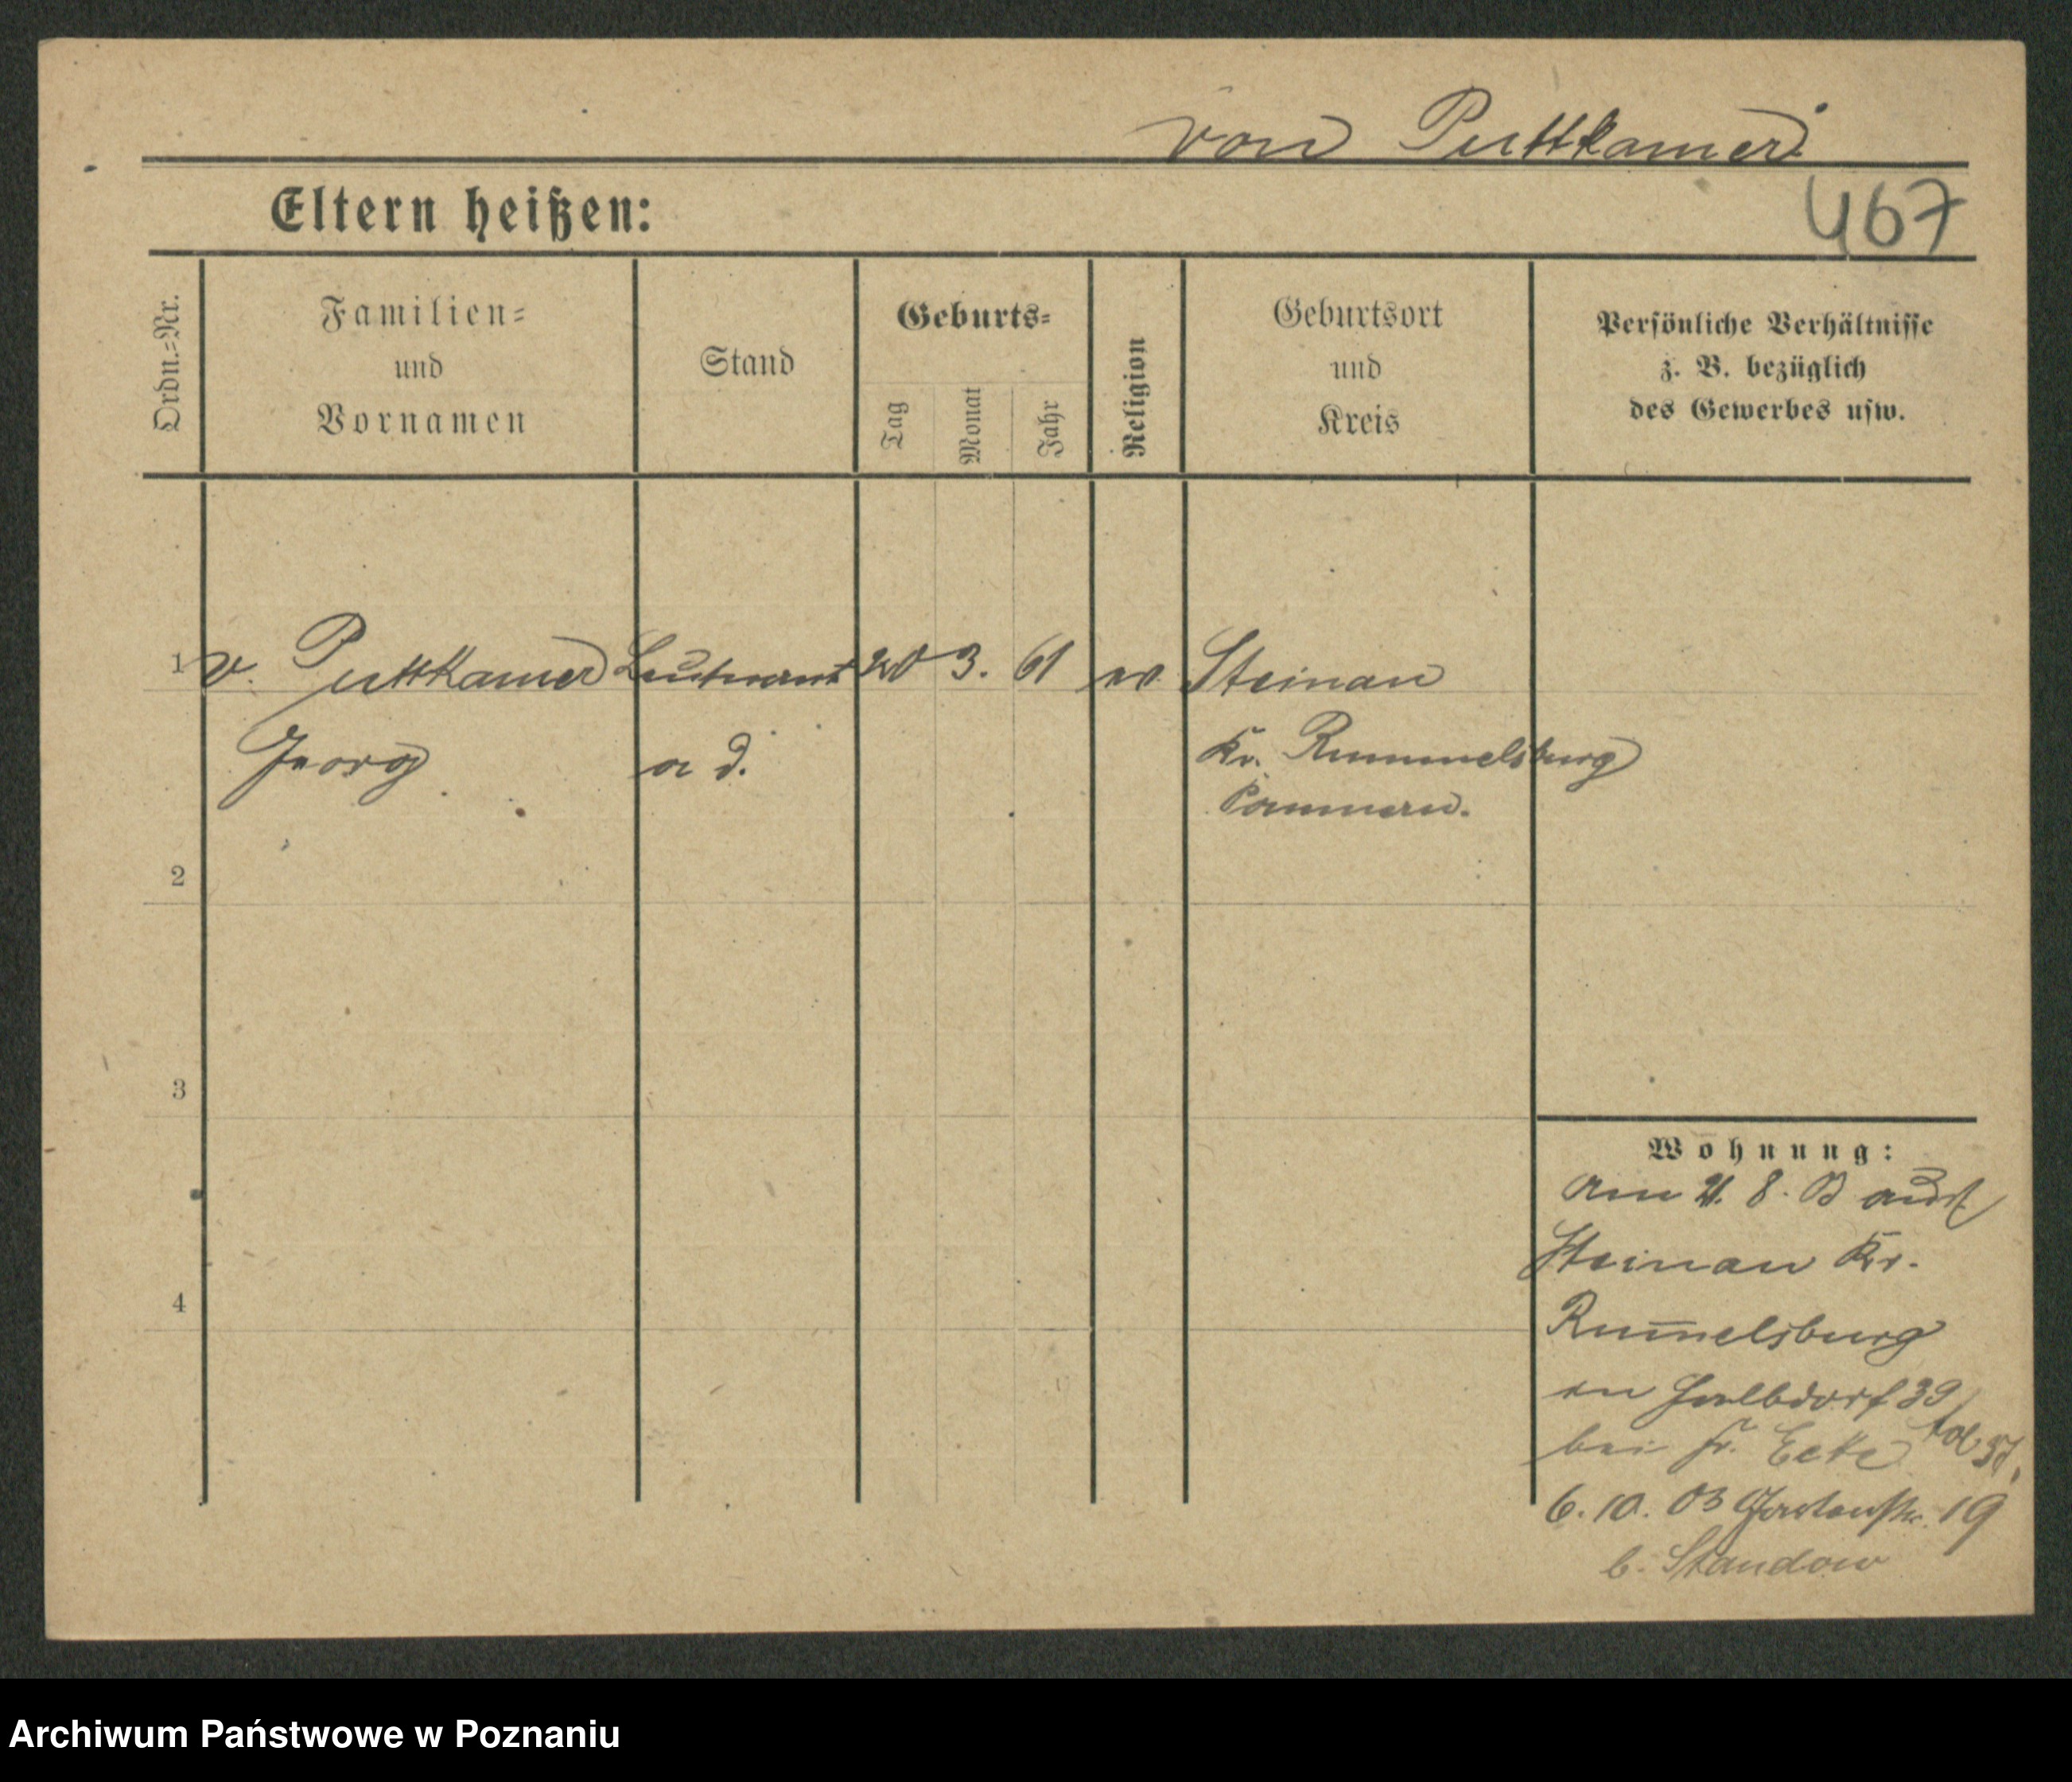 von Puttkamer
Eltern heißen:
467
Ordn.-Nr.
Familien-
und
Vornamen
Stand
Geburts-
Tag
Monat
Jahr
Religion
Geburtsort
und
Kreis
Persönliche Verhältnisse
z. B. bezüglich
des Gewerbes usw.
1 v. Puttkamer Leutnant 20 3. 61 ev Steinau
Georg a d. Kr. Rummelsburg
Pommern.
2
3
4
Wohnung:
am 21. 8. 03 aus
Steinau Kr.
Rum̅elsburg
bei Fr. Ecke
6. 10. 03 Gartenstr. 19
b. Standow
Archiwum Państwowe w Poznaniu